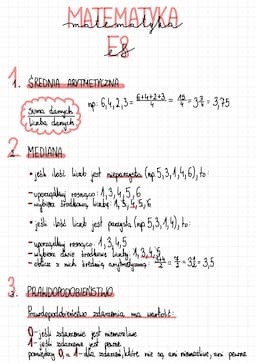 MATEMATYKA
matematyka
E8
e8
1. ŚREDNIA ARYTMETYCZNA
Suma danych
liczba danych
np: 6,4,2,3 = 6+4+2+3/4 = 15/4 = 3 3/4 = 3,75
2. MEDIANA
• jeśli ilość liczb jest nieparzysta (np. 5,3,1,4,6), to:
- uporządkuj rosnąco: 1,3,4,5,6
- wybierz środkową liczbę: 1,3,4,5,6
• jeśli ilość liczb jest parzysta (np. 5,3,1,4), to:
- uporządkuj rosnąco: 1,3,4,5
- wybierz dwie środkowe liczby: 1,3,4,5
- oblicz z nich średnią arytmetyczną: = 7/2 = 3 1/2 = 3,5
3. PRAWDOPODOBIEŃSTWO
Prawdopodobieństwo zdarzenia ma wartość:
0 - jeśli zdarzenie jest niemożliwe
1 - jeśli zdarzenie jest pewne
pomiędzy 0 a 1 - dla zdarzeń, które nie są ani niemożliwe, ani pewne